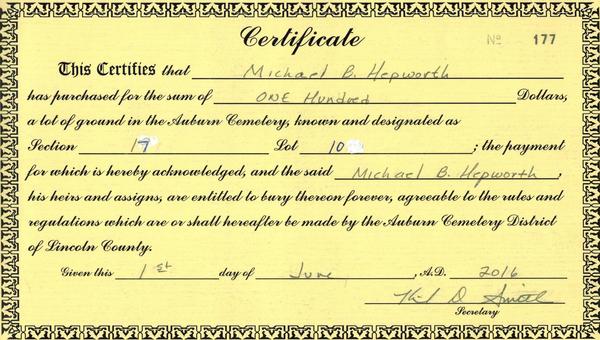 Certificate
Nº 177
This Certifies that Michael B. Hepworth
has purchased for the sum of ONE Hundred Dollars,
a lot of ground in the Auburn Cemetery, known and designated as
Section 19 Lot 10 ; the payment
for which is hereby acknowledged, and the said Michael B. Hepworth,
his heirs and assigns, are entitled to bury thereon forever, agreeable to the rules and
regulations which are or shall hereafter be made by the Auburn Cemetery District
of Lincoln County.
Given this 1st day of June, A.D. 2016
D. Smith
Secretary